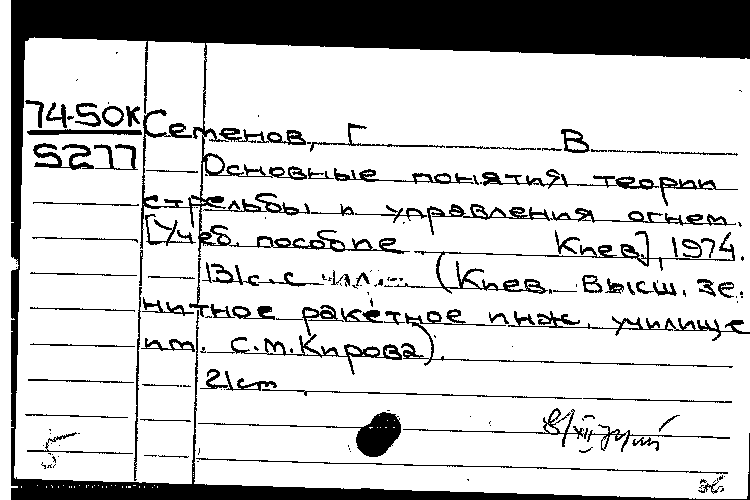 74-50К
5277
Семенов, Г В
Основные понятия теории
стрельбы и управления огнем.
[Учеб. пособие. Киев], 1974.
131с. с ил. (Киев. высш. зе-
нитное ракетное инж. училище
им. С.М.Кирова).
21см.
5
8/XII